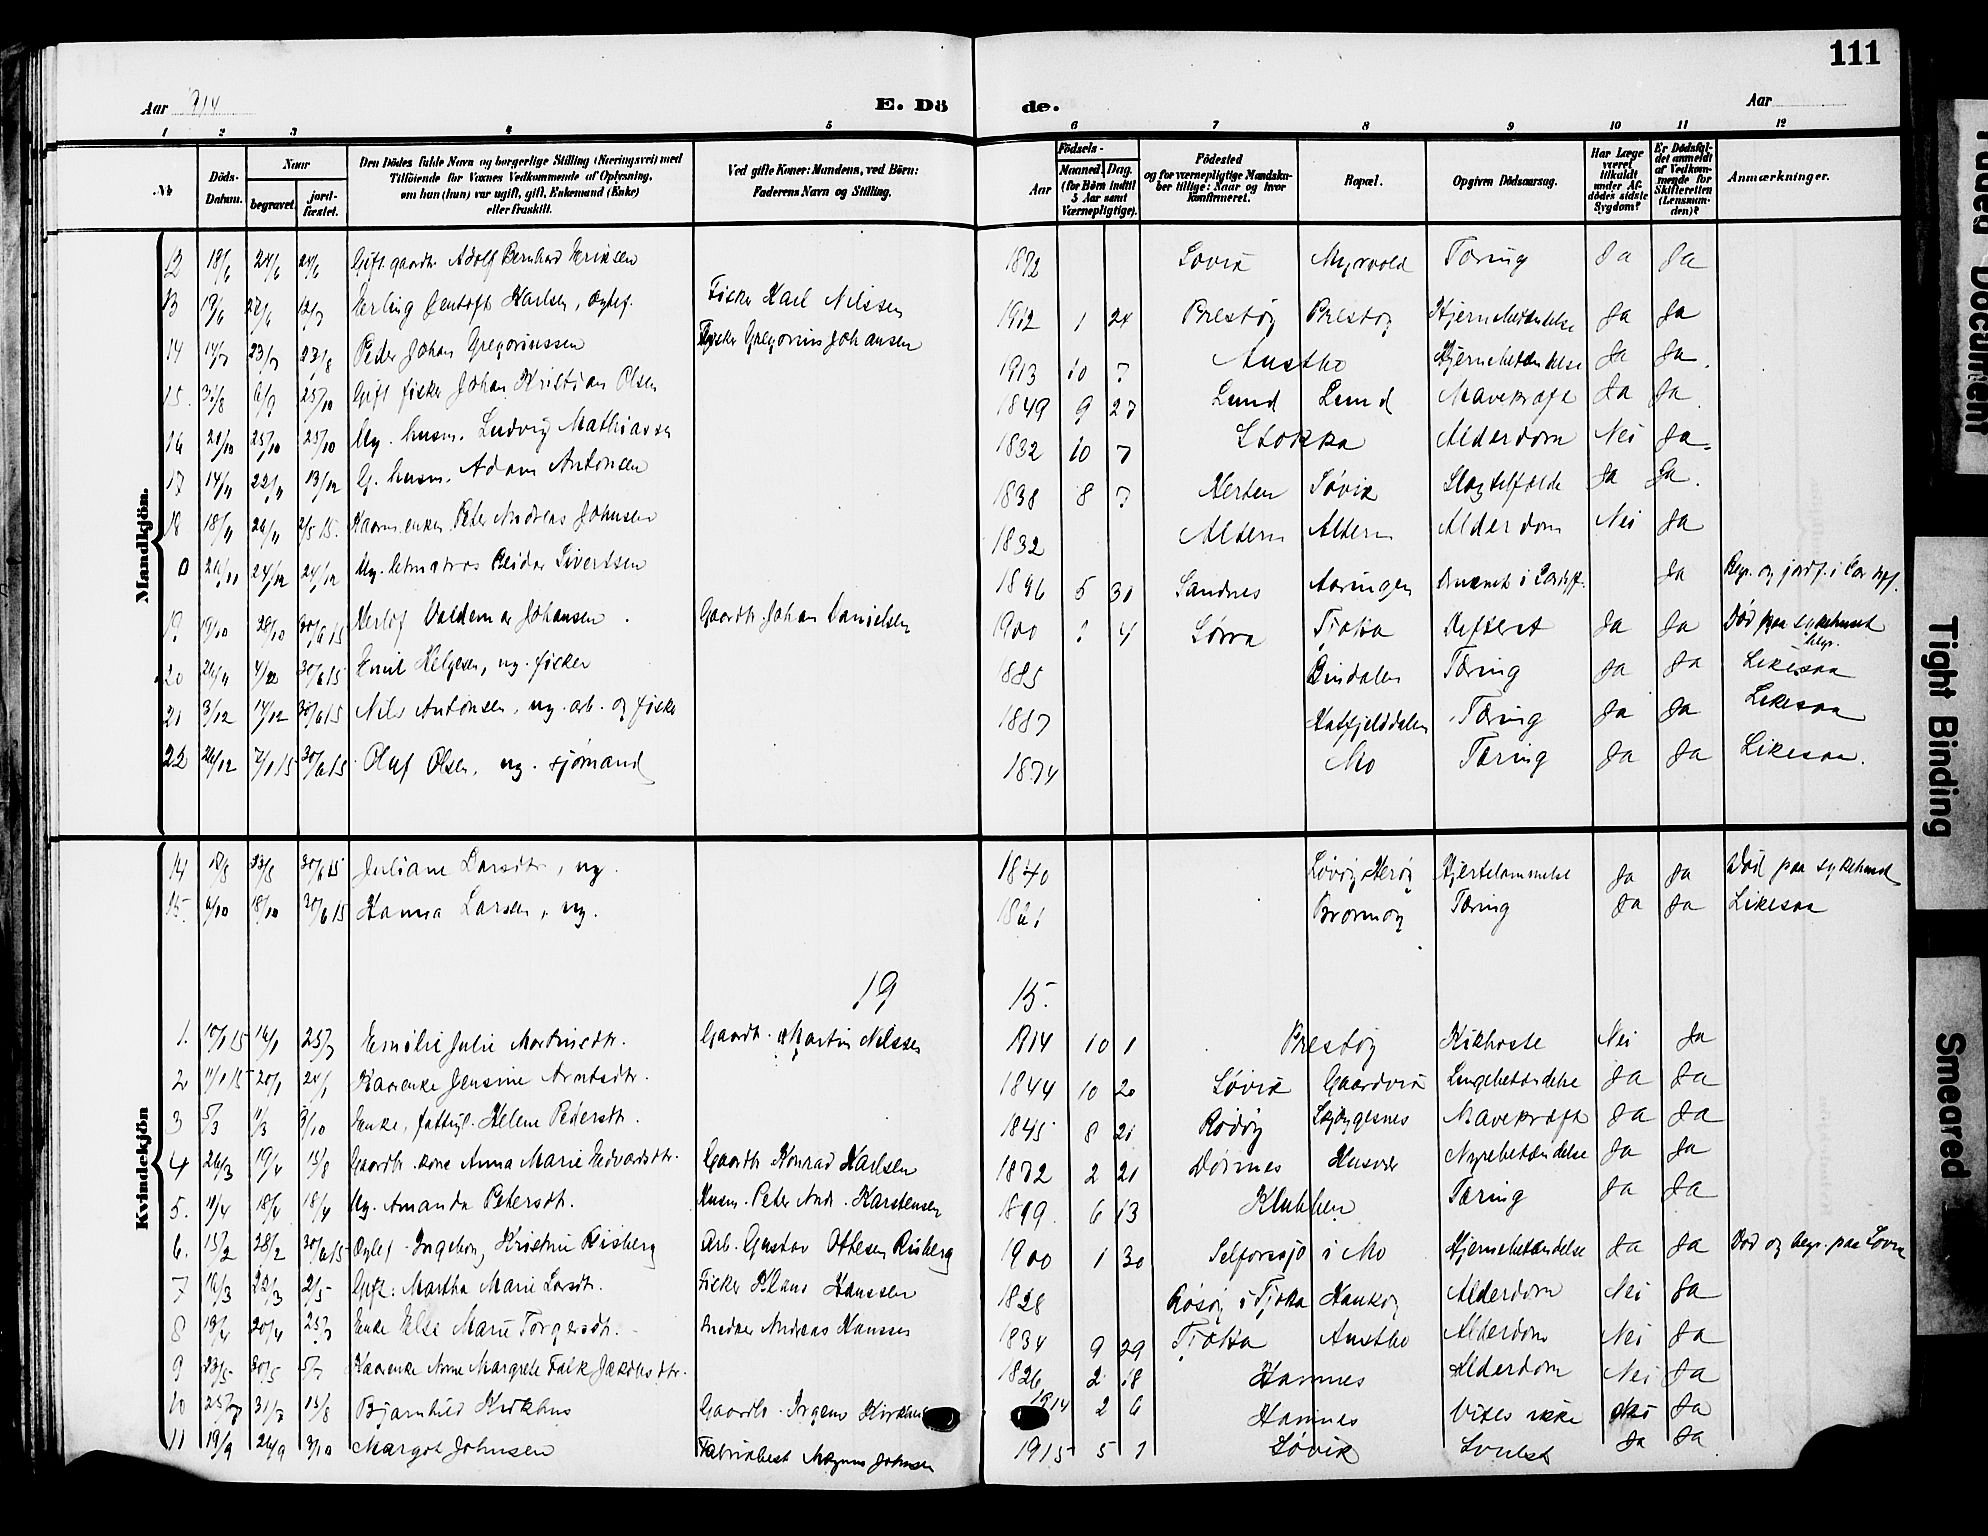 111
Aar 1914 E. Dö de. Aar
1 2 3 4 5 6 7 8 9 10 11 12
№ Döds-Datum. Naar begravet. jordfæstet. Den Dödes fulde Navn og borgerlige Stilling (Næringsvei) med Tilföiende for Voxnes Vedkommende af Oplysning, om han (hun) var ugift, gift, Enkemand (Enke) eller fraskilt. Ved gifte Koner: Mandens, ved Börn: Faderens Navn og Stilling. Födsels- Aar Maaned. Dag. (for Börn indtil 5 Aar samt Værnepligtige). Födested og for værnepligtige Mandskaber tillige: Naar og hvor konfirmeret. Bopæl. Opgiven Dödsaarsag. Har Læge været tilkaldt under Afdödes sidste Sygdom? Er Dödsfaldet anmeldt af Vedkommende for Skifteretten (Lensmanden)? Anmærkninger.
Mandkjön.
12 18/6 24/6 24/6 Gift gaardbr Adolf Bernhard Eriksen 1872 Søvik Myrvold Tæring Ja Ja
13 19/6 Erling Karlsen Fisker Karl Nilssen 1912 1 24 Prestøy Prestøy Hjernebetændelse Ja Ja
14 14/7 23/7 23/8 Peder Johan Gregoriussen Fisker Gregorius Johansen 1913 10 7 Austbø Hjernebetændelse Ja Ja.
15. 31/8 6/9 25/10 Gift fisker Johan Kristian Olsen 1849 9 27 Lund Lund Mavekræft Ja Ja.
16 20/10 25/10 25/10 Ug. husm. Ludvig Mathiassen 1832 10 7 Stokka Alderdom Nei Ja
17 14/11 22/11 13/12 G. husm. Adam Antonsen 1838 8 7 Søvik Slagtilfælde Ja Ja.
18 18/11 26/11 2/5 15. Kaarm. enkem Peter Andreas Johnsen 1832 Altern Altern Alderdom Nei Ja
0 24/12 24/12 Ug. Reidar Sivertsen 1896 5 30 Sandnes Druknet i Ja Begr. og jordf. i
19 28/10 30/6 15 Herlof Valdemar Johansen. Gaardbr Johan Danielsen 1900 ? 4 Tjøtta Ja Ja Død paa sykehuset
begr.
20 26/11 4/12 30/6 15 Emil Helgesen, ug. fisker 1885 Bindalen Tæring Ja Ja Likesaa
21 3/12 14/12 30/6 15 Nils Antonsen, ug. arb. og fisker 1887 Hatfjelddalen Tæring Ja Ja Likesaa
22 26/12 7/1 15 30/6 15 Oluf Olsen, ug. sjømand 1874 Mo Tæring Ja Ja Likesaa.
Kvindekjön
14 30/6 15 Juliane Larsdtr, ug. 1840 Herøy Hjertelammelse Ja Ja Død paa sykehuset
15. 6/10 18/10 30/6 15 Hanna Larsen, ug. 1861 Brønnøy Tæring Ja Ja Likesaa
19 15.
1. 10/1 15 16/1 25/7 Emilie Julie Martinsdtr. Gaardbr. Martin Nilssen 1914 10 1 Prestøy Kikhoste Nei Ja
2 11/1 15 20/1 20/1 Kaarenke Jensine Arntsdtr. 1844 10 20 Søvik Gaardvik Lungebetændelse Ja Ja
3 5/3 11/3 3/10 Enke, fattigl. Helene Pedersdtr. 1845 8 21 Rødøy Mavekræft Ja Ja
4 26/3 19/4 15/8 Gaardbr. kone Anna Marie Edvardsdtr. Gaardbr Konrad Karlsen 1872 2 21 Dønnes Husvær Nyrebetændelse Ja Ja
5. 11/4 18/4 18/4 Ug. Amanda Petersdtr. Husm. Peter Andr. Karstensen 1899 6 13 Klubben Tæring Ja Ja
6. 15/2 28/2 30/6 15 Ingeborg Kristine Risberg Arb. Gustav Ottesen Risberg 1900 1 30 Selforssjø i Mo Hjernebetændelse Ja Ja Død og begr. paa Løvøy
7 16/3 22/3 2/5 Gift: Martha Marie Larsdtr. Fisker Klaus Hanssen 1828 Røsøy i Tjøtta Haukøy Alderdom Nei Ja
8 18/4 20/4 25/7 Enke Else Marie Torgersdtr. Snedker Andreas Hanssen 1834 9 29 Tjøtta Austbø Alderdom Nei Ja
9 23/5 30/5 5/7 Kaarenke Anne Margrete Falk Jakobsdtr. 1826 2 18 Hamnes Alderdom Nei Ja
10 25/7 31/7 15/8 Bjarnhild Kirkhus Gaardbr. Jørgen Kirkhus 1914 2 6 Hamnes Vites ikke Nei Ja
11 19/9 26/9 3/10 Margot Johnsen Fabrikbest Magnus Johnsen 1915 5 1 Søvik Svulst Ja Ja
Faded Document
Tight Binding
Smeared